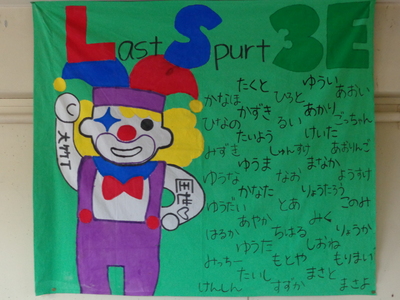 Last Spurt 3E
たくと ゆうい
かなほ ひろと あおい
かずき あかり
ひなの るい ごっちゃん
たいよう けいた
みずき しゅんすけ あおりんご
ゆうま まなか
ゆうな なお ようすけ
かなた りょうたろう
ゆうだい とあ このみ
あやか みく
はるか ちはる りょうか
ゆうた しおね
みっちー もとや もりまい
たいし まさと
けんしん すずか まさよ